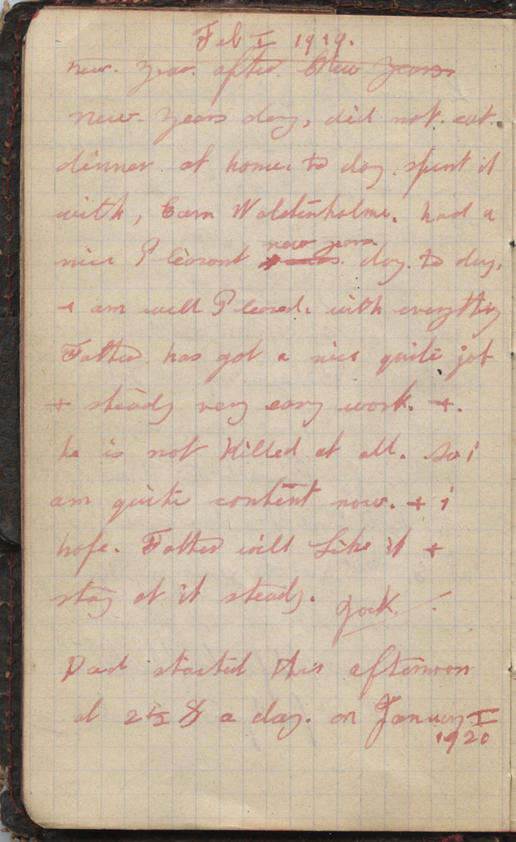 Feb I 1919.
new. year. after. New years
new. years day, did not. eat.
dinner. at home. to day. spent it
with, Earn Wolstenholme. had a
nice Pleasent new years day. to day,
+ am well Pleased. with everything
Father. has got a nice quite job
+ steady very easy work. +.
he is not Killed at all. So i
am quite content now. + i
hope. Father will Like it +
stay at it steady. Jack.
Dad started this afternoon
at 2½ $ a day. on January I
1920